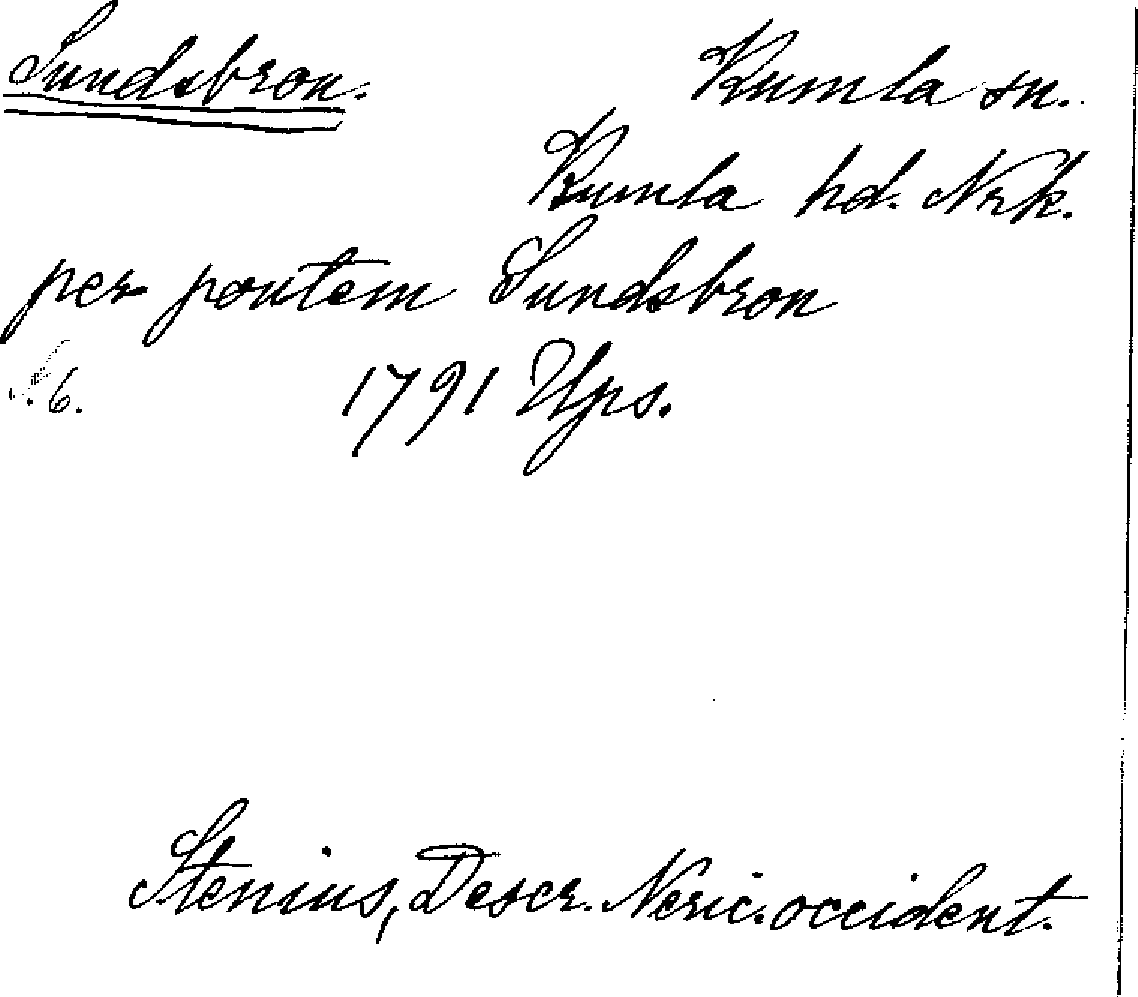 Sundsbron. Kumla sn.
Kumla hd. Nrk.
per pontem Sundsbron
S. 6. 1791 Ups.
Stenius, Descr. Neric. occident.